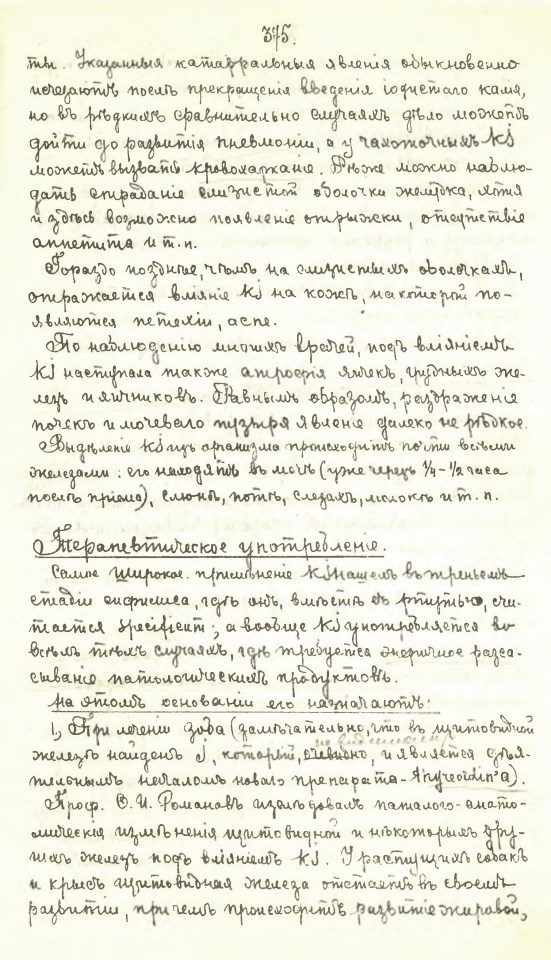 375.
ты. Указанныя катарральныя явленія обыкновенно
исчезаютъ послѣ прекращенія введенія іодистаго калія,
но въ рѣдкихъ сравнительно случаяхъ дѣло можетъ
дойти до развитія пневмоніи, а у чахоточныхъ KJ
можетъ вызвать кровохарканіе. Рѣже можно наблю-
дать страданіе слизистой оболочки желудка, хотя
и здѣсь возможно появленіе отрыжки, отсутствіе
аппетита и т. п.
Гораздо позднѣе, чѣмъ на слизистыхъ оболочкахъ,
отражается вліяніе KJ на кожѣ, на которой по-
являются петехіи, acne.
По наблюденію многихъ врачей, подъ вліяніемъ
KJ наступала также атрофія яичекъ, грудныхъ же-
лезъ и яичниковъ. Равнымъ образомъ, раздраженіе
почекъ и мочевого пузыря явленіе далеко не рѣдкое.
Выдѣленіе KJ изъ организма происходитъ почти всѣми
железами: его находятъ въ мочѣ (уже черезъ ¼-½ часа
послѣ пріема), слюнѣ, потѣ, слезахъ, молокѣ и т. п.
Терапевтическое употребленіе.
Самое широкое примѣненіе KJ нашелъ въ третьемъ
стадіи сифилиса, гдѣ онъ, вмѣстѣ съ ртутью, счи-
тается specificum; а вообще KJ употребляется во
всѣхъ тѣхъ случаяхъ, гдѣ требуется энергичное разса-
сываніе патологическихъ продуктовъ.
На этомъ основаніи его назначаютъ:
1, При леченіи зоба (замѣчательно, что въ щитовидной
железѣ найденъ J, который, очевидно, и является дѣя-
тельнымъ началомъ новаго препарата - Thyreoidin'а).
Проф. Ѳ. И. Романовъ изслѣдовалъ паталого-анато-
мическія измѣненія щитовидной и нѣкоторыхъ дру-
гихъ железъ подъ вліяніемъ KJ. У растущихъ собакъ
и крысъ щитовидная железа отстаетъ въ своемъ
развитіи, при чемъ происходитъ развитіе жировой,